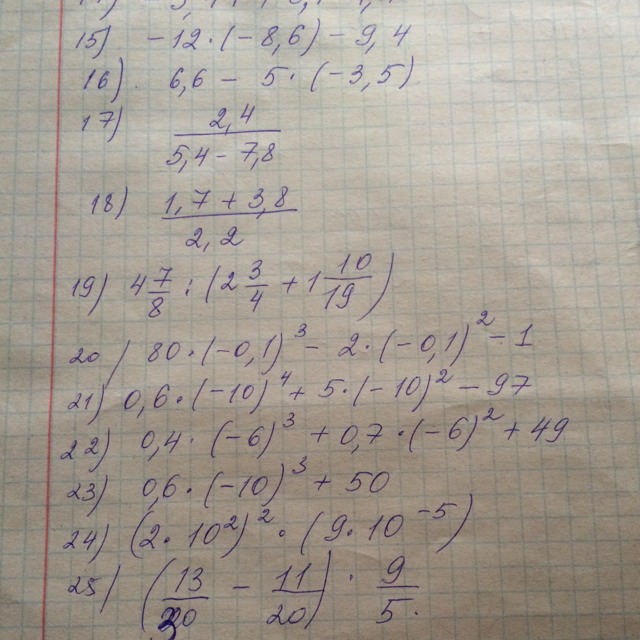 15) -12·(-8,6) - 9,4
16) 6,6 - 5·(-3,5)
17) 2,4
5,4 - 7,8
18) 1,7 + 3,8
2,2
19) 4 7/8 : (2 3/4 + 1 10/19)
20) 80·(-0,1)³ - 2·(-0,1)² - 1
21) 0,6·(-10)⁴ + 5·(-10)² - 97
22) 0,4·(-6)³ + 0,7·(-6)² + 49
23) 0,6·(-10)³ + 50
24) (2·10²)²·(9·10⁻⁵)
25) (13/30 - 11/20)·9/5